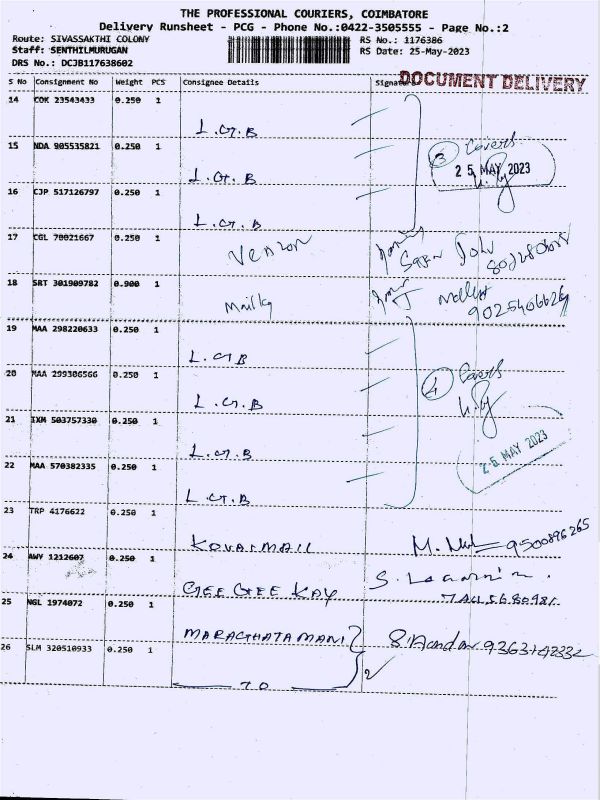 THE PROFESSIONAL COURIERS, COIMBATORE
Delivery Runsheet - PCG - Phone No.:0422-3505555 - Page No.:2
Route: SIVASSAKTHI COLONY RS No.: 1176386
Staff: SENTHILMURUGAN RS Date: 25-May-2023
DRS No.: DCJB117638602
DOCUMENT DELIVERY
S No Consignment No Weight PCS Consignee Details Signature
14 COK 23543433 0.250 1
L.G.B
15 NDA 905535821 0.250 1
3 Covers
25 MAY 2023
L.G.B
16 CJP 517126797 0.250 1
L.G.B
17 CGL 70021667 0.250 1
18 SRT 301909782 0.900 1
9025406626
19 MAA 298220633 0.250 1
L.G.B
20 MAA 299306566 0.250 1
4 Covers
L.G.B
21 IXM 503757330 0.250 1
L.G.B
25 MAY 2023
22 MAA 570382335 0.250 1
L.G.B
23 TRP 4176622 0.250 1
KOVAI MAIL 9500896265
24 AWY 1212607 0.250 1
GEE GEE KAY
25 NGL 1974072 0.250 1
MARAGHATAMANI
26 SLM 320510933 0.250 1